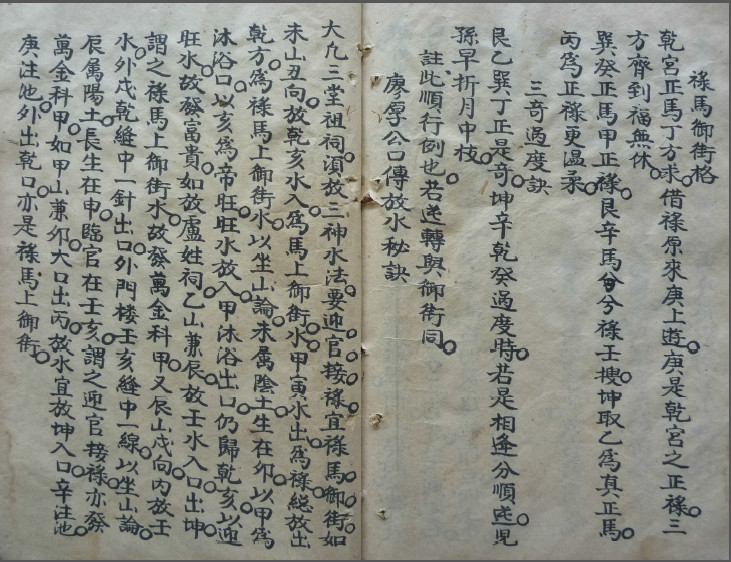 祿馬御街格
乾宮正馬丁方求。借祿原來庚上遊。庚是乾宮之正祿。三
方齊到福無休。
巽癸正馬甲正祿。艮辛馬兮祿壬搜。坤取乙為真正馬。
丙為正祿更溫柔。
三奇過度訣
艮乙巽丁正是奇。坤辛乾癸過度時。若是相逢分順逆。兒
孫早折月中枝。
註此順行例也。若逆轉與御街同。
廖厚公口傳放水秘訣
大凢三堂祖祠。湏放三神水法。要迎官接祿。宜祿馬御街。如
未山丑向放乾亥水入。為馬上御街。水甲寅水出。為祿。總放出
乾方。為祿馬上御街水。以坐山論。未屬陰土。生在夘。以甲為
沐浴。口以亥為帝旺。旺水放入甲沐浴出口。仍歸乾亥。以迎
旺水。故發富貴。如放盧姓祠。乙山兼辰。放壬水入口。出坤。
謂之祿馬上御街水。故發萬金科甲。又辰山戌向。內放壬
水。外戌乾縫中一針出口。外門楼壬亥縫中一線。以坐山論。
辰属陽土。長生在申。臨官在壬亥。謂之迎官接祿。亦發
萬金科甲。如甲山兼夘。大口出丙。放水宜放坤入口。辛注池。
庚注池。外出乾口。亦是祿馬上御街。